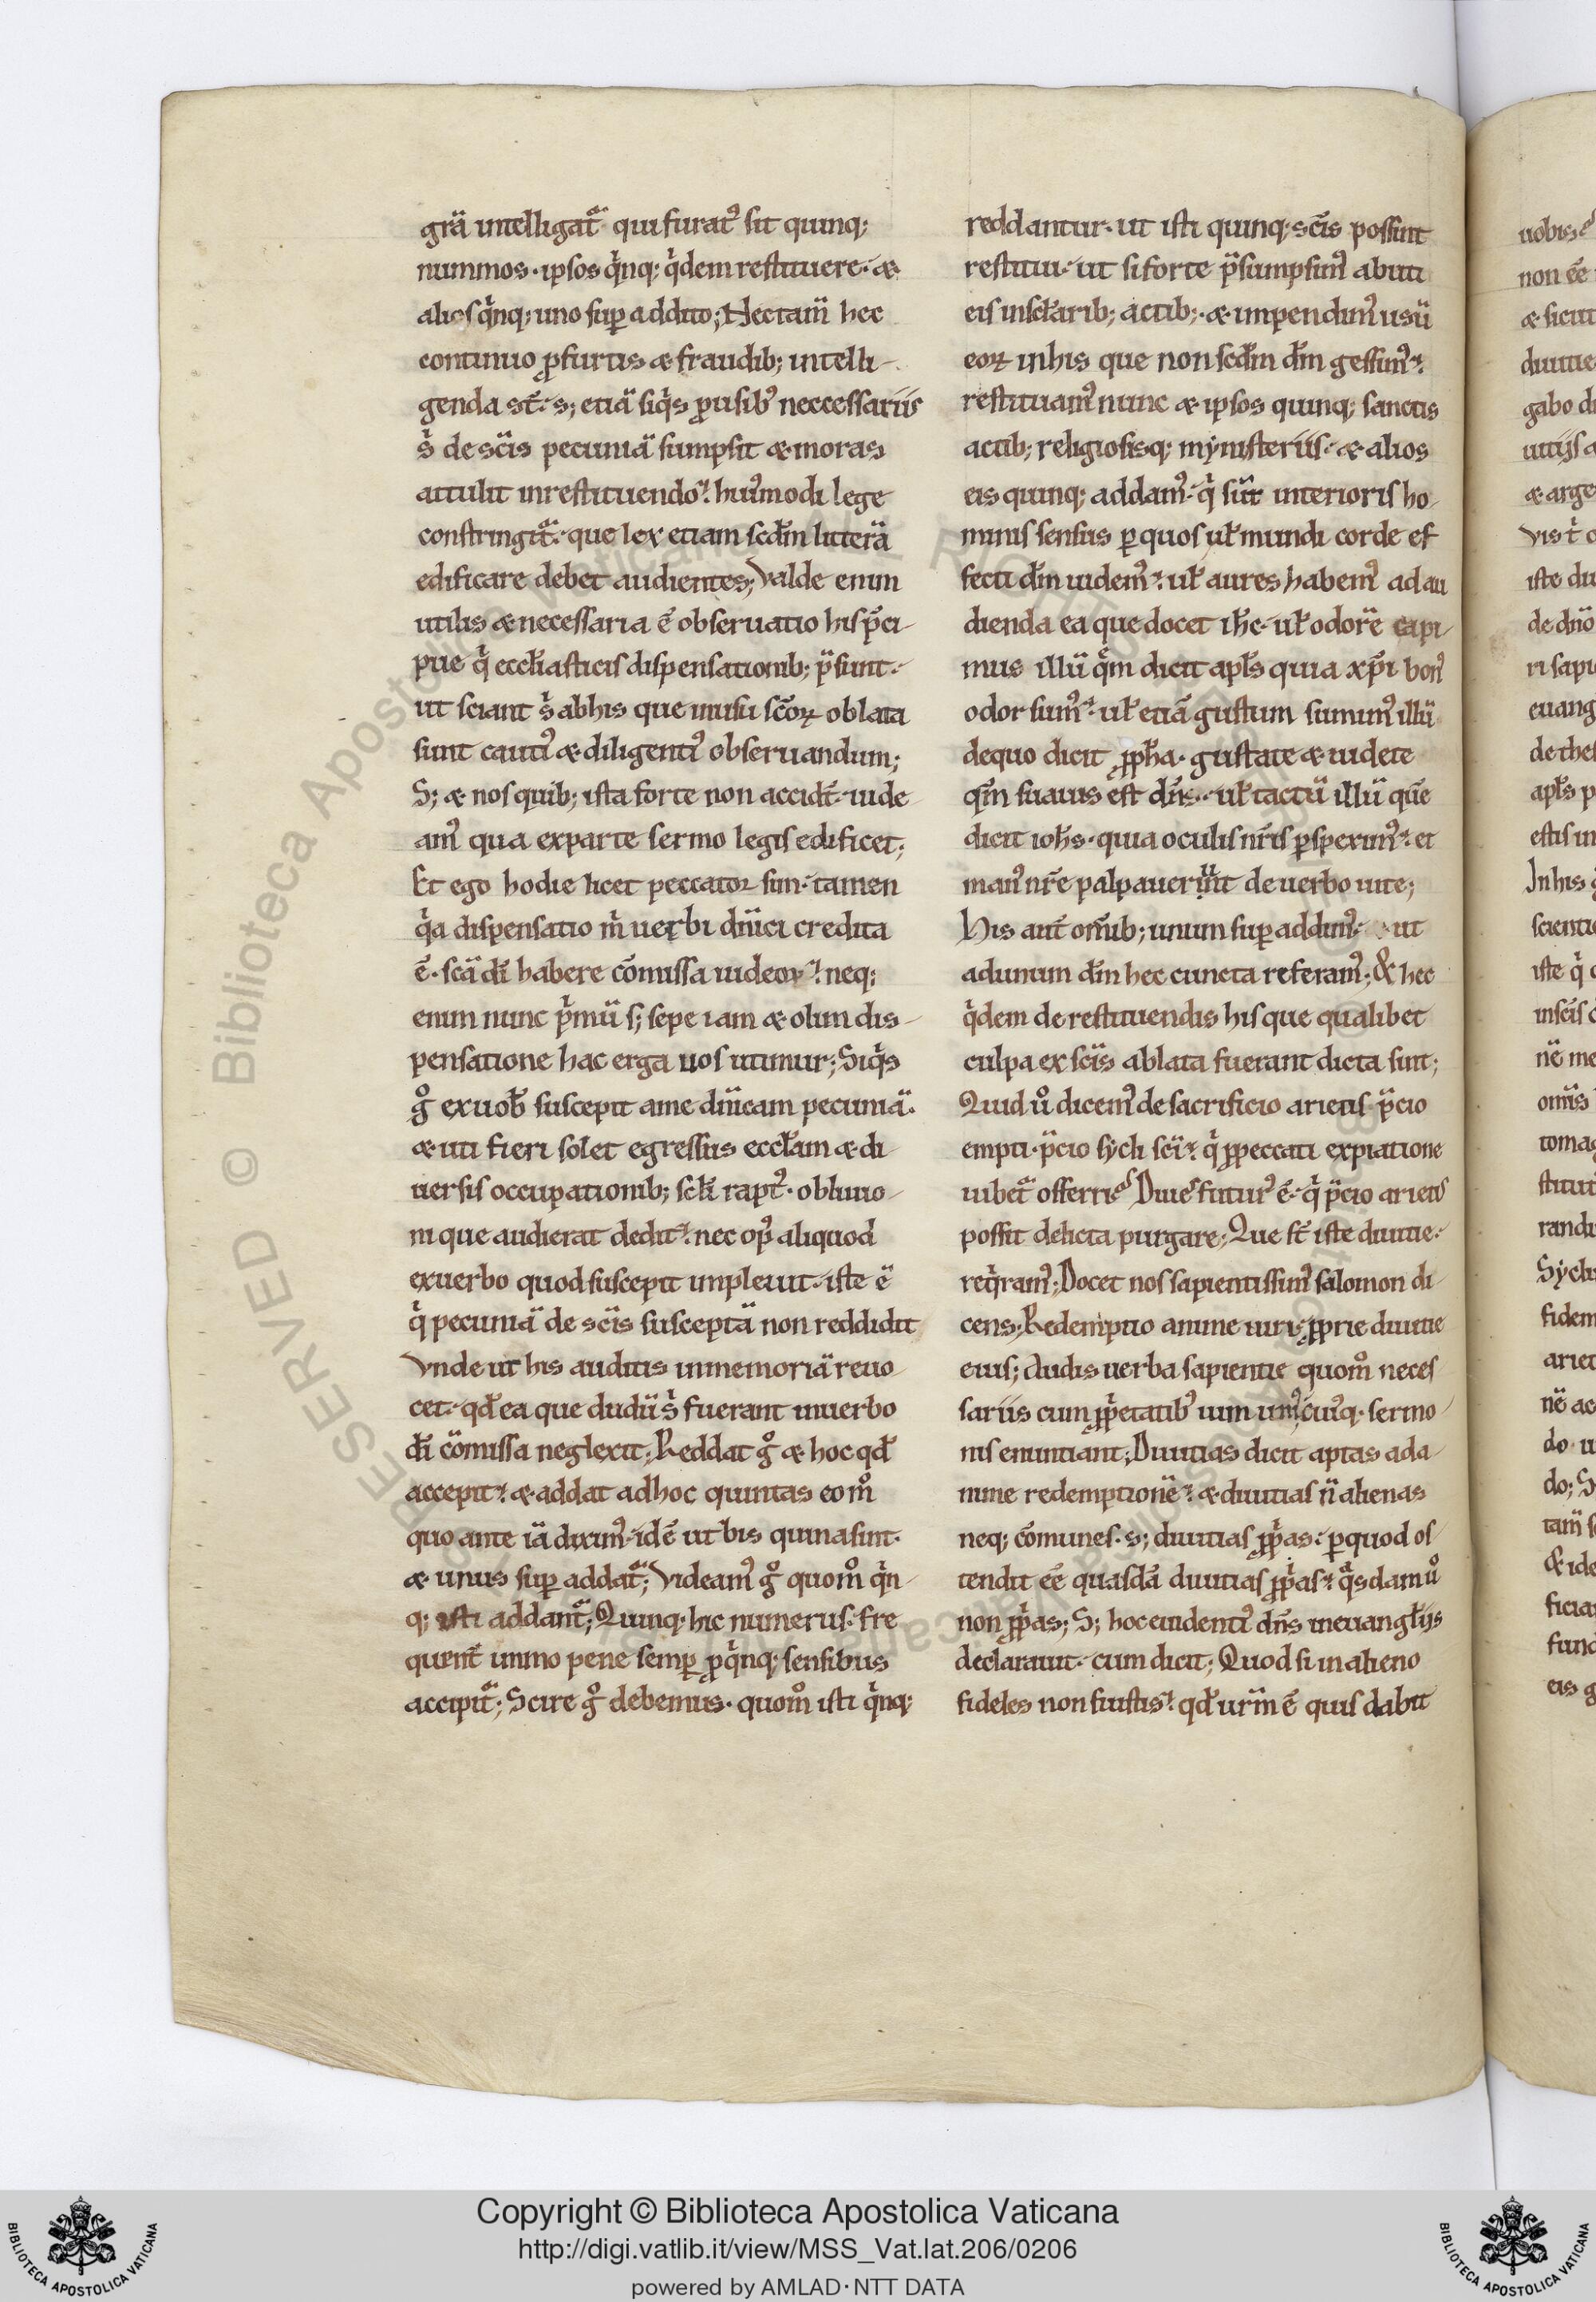 grã intelligat᷑ qui furatꝰ sit quinq;
nummos · ipsos qͥnq; qͥdem restituere · &
alios qͥnq; uno suꝑ addito; Hec tam̃ hec
continuo ꝓfurtis & fraudib; intelli-
genda st̃ · s; etiã siqͥs ꝓusibꝰ neccessariis
sͥ de scĩs pecuniã sumpsit & moras
attulit in restituendo · huiꝰmodi lege
constringit᷑ · que lex etiam scđm litterã
edificare debet audientes; Valde enim
utilis & necessaria ẽ obseruatio his p̃ci-
pue qͥ eccłiasticis dispensationib; p̃sunt ·
ut sciant sͥ ab his que in usu scõꝝ oblata
sunt cautiꝰ & diligentiꝰ obseruandum;
S; & nos quib; ista forte non accidt̃ · uide
amꝰ qua ex parte sermo legis edificet;
Et ego hodie licet peccator sim · tamen
qͥa dispensatio mͥ uerbi dñici credita
ẽ · scã dĩ habere cõmissa uideor · neq;
enim nunc pͥmũ s; sepe iam & olim dis-
pensatione hac erga uos utimur; Siqͥs
gͦ ex uob̃ suscepit a me dñicam pecuniã ·
& uti fieri solet egressus eccłam & di-
uersis occupationib; scłi raptꝰ · obliuio-
ni que audierat dedit · nec opꝰ aliquod
ex uerbo quod suscepit impleuit · iste ẽ
qͥ pecuniã de scĩs susceptã non reddidit
Vnde ut his auditis in memoriã reuo-
cet · qđ ea que dudũ sͥ fuerant in uerbo
dĩ cõmissa neglexit; Reddat gͦ & hoc qđ
accepit · & addat ad hoc quintas eo mͦ
quo ante iã diximꝰ · id ẽ ut bis quina sint ·
& unus suꝑ addat᷑; Videamꝰ gͦ quomͦ qͥn-
q; isti addant᷑; Quinq; hic numerus · fre
quent̃ immo pene semꝑ ꝓ qͥnq; sensibus
accipit᷑; Scire gͦ debemus · quomͦ isti qͥnq;
reddantur · ut isti quinq; scĩs possint
restitui · ut si forte p̃sumpsimꝰ abuti
eis in scłarib; actib; · & impendimꝰ usũ
eoꝝ in his que non scđm dm̃ gessimꝰ ·
restituamꝰ nunc & ipsos quinq; sanctis
actib; religiosisq; mynisteriis · & alios
eis quinq; addamꝰ · qͥ sũt interioris ho-
minis sensus ꝑ quos uł mundi corde ef
fecti dm̃ uidemꝰ · uł aures habemꝰ ad au
dienda ea que docet ihc̃ · uł odorẽ capi-
mus illũ qͣm dicit apłs quia xp̃i bonꝰ
odor sumꝰ · uł etiã gustum sumimꝰ illũ
de quo dicit ꝓph̃a · gustate & uidete
qm̃ suauis est dñs · uł tactũ illũ quẽ
dicit ioh̃s · quia oculis nr̃is ꝑspeximꝰ · et
manꝰ nr̃e palpauerunt de uerbo uite;
His aut̃ om̃ib; unum suꝑ addimꝰ · ut
ad unum dm̃ hec cuncta referamꝰ; & hec
qͥdem de restituendis his que qualibet
culpa ex scĩs ablata fuerant dicta sint;
Quid ůo dicemꝰ de sacrificio arietis p̃cio
empti · p̃cio sycli scĩ · qͥ ꝓ peccati expiatione
iubet᷑ offerri; Diues futurꝰ ẽ · qͥ p̃cio arietis
possit delicta purgare; Que st̃ iste diuitie ·
reqͥramꝰ; Docet nos sapientissimꝰ salomon di
cens; Redemptio anime uiri · ꝓprie diuitie
eius; Audis uerba sapientie quomͦ neces
sariis cum ꝓpͥetatibꝰ uim uniꝰcuiꝰq; sermo-
nis enuntiant; Diuitias dicit aptas ad a-
nime redemptionẽ · & diuitias ñ alienas
neq; cõmunes · s; diuitias ꝓpͥas · ꝑ quod os
tendit eẽ quasdã diuitias ꝓpͥas · qͣsdam ůo
non ꝓpͥas; S; hoc euidentiꝰ dñs in euangłiis
declarauit · cum dicit; Quod si in alieno
fideles non fuistis · qđ urm̃ ẽ quis dabit
uobis
non eẽ
& sicut
diuitie
gabo
uitiis
& arge
iste
de dño
ri sapi
euang
de thes
apłs
estis in
In his
scienti
iste qͥ
in scĩs
nẽ me
om̃is
stitut
rand
Sycl
fidem
ariet
do
do; S
& ide
ficia
fund
eis
Copyright © Biblioteca Apostolica Vaticana
http://digi.vatlib.it/view/MSS_Vat.lat.206/0206
powered by AMLAD · NTT DATA
BIBLIOTECA APOSTOLICA VATICANA
BIBLIOTECA APOSTOLICA VATICANA